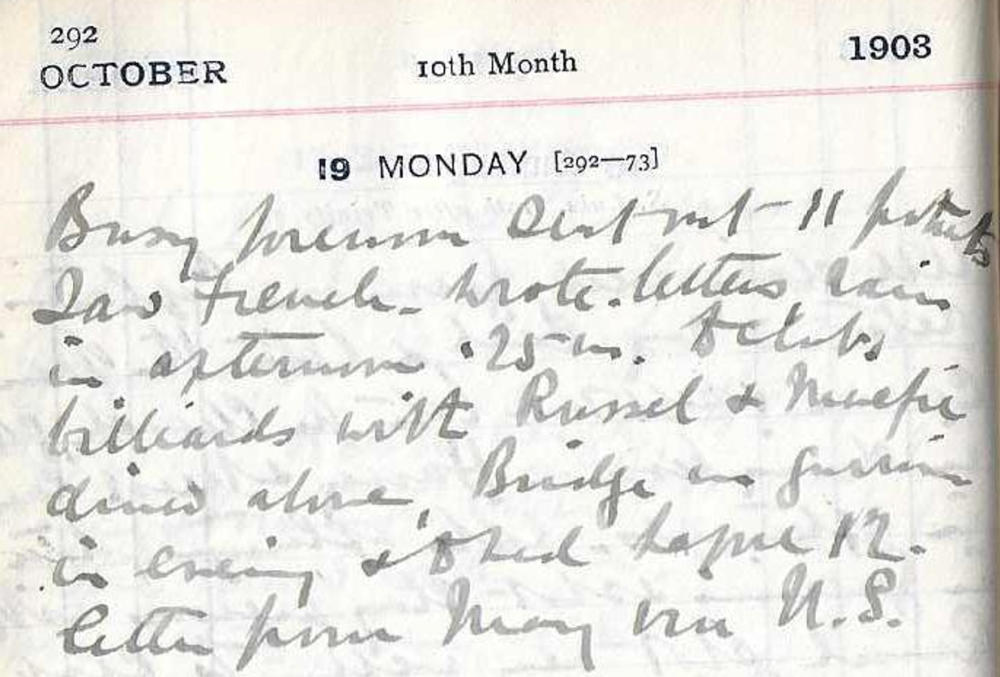 292
OCTOBER 10th Month 1903
19 MONDAY [292—73]
Busy forenoon Sent out 11 patients
Saw French. Wrote letters, rain
in afternoon .25 in. To club
billiards with Russel & Macfie
dined alone, Bridge in
in evening & to bed before 12.
letter from May via U.S.